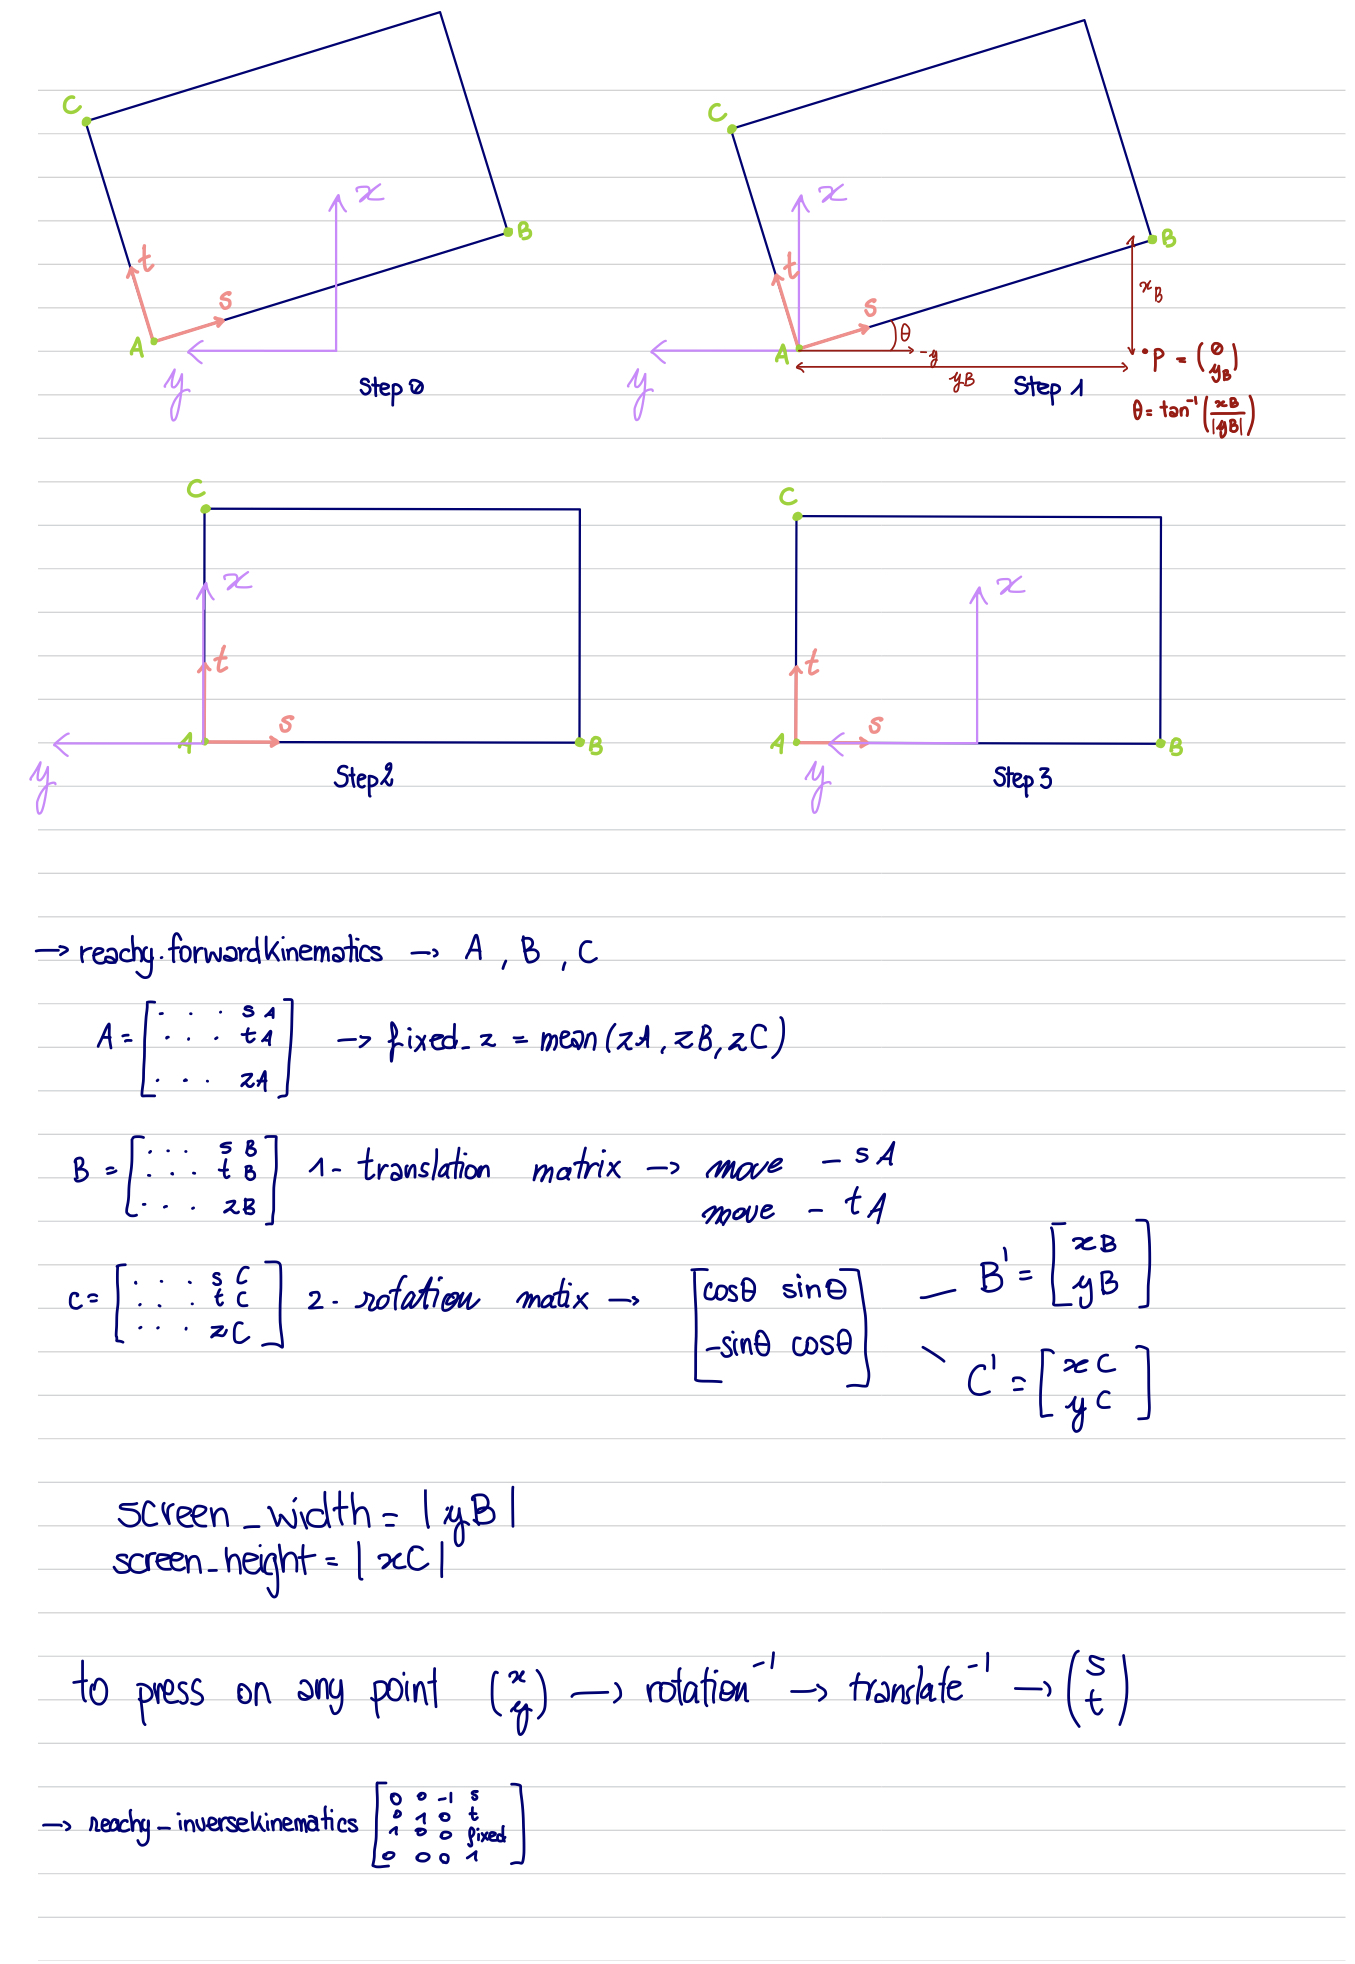 C
x
B
t
s
A
y
Step 0
C
x
B
t
s
θ
xB
A
-y
P = (0 yB)
yB
y
Step 1
θ = tan⁻¹ (xB / |yB|)
C
x
t
s
A
B
y
Step 2
C
x
t
s
A
B
y
Step 3
→ reachy.forwardkinematics → A , B , C
A = [. . . sA
. . . tA
. . . zA] → fixed_z = mean(zA, zB, zC)
B = [. . . sB
. . . tB
. . . zB] 1- translation matrix → move - sA
move - tA
C = [. . . sC
. . . tC
. . . zC] 2- rotation matix → [cosθ sinθ
-sinθ cosθ]
B' = [xB
yB]
C' = [xC
yC]
screen_width = |yB|
screen_height = |xC|
to press on any point (x y) → rotation⁻¹ → translate⁻¹ → (s t)
→ reachy_inversekinematics [0 0 -1 s
0 1 0 t
1 0 0 fixed
0 0 0 1]